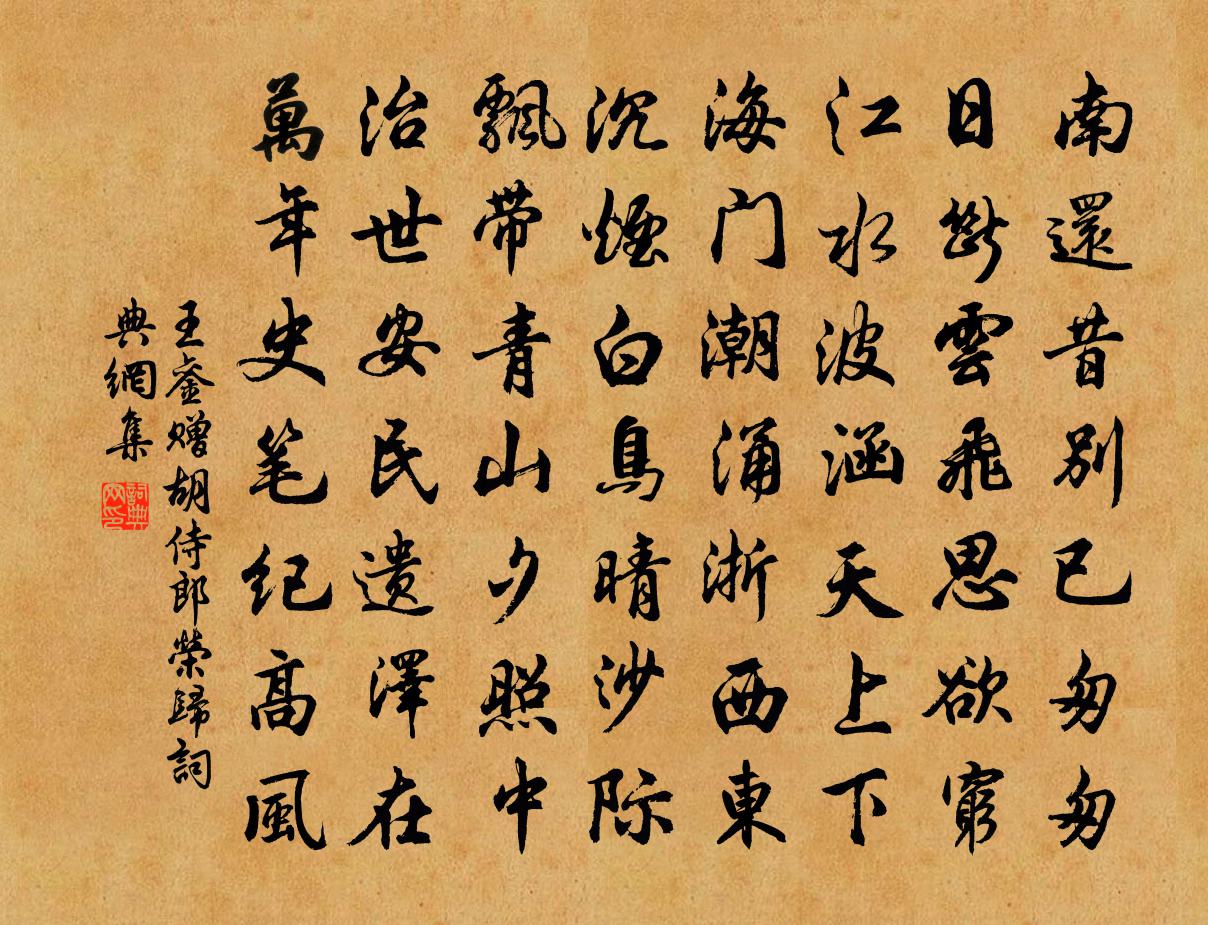 南還昔别已匆匆
日斷雲飛思欲窮
江水波涵天上下
海门潮涌浙西東
沉煙白鳥晴沙际
飄带青山夕照中
治世安民遗澤在
萬年史笔纪高風
王崟赠胡侍郎榮歸詞
典網集
詞典
网印